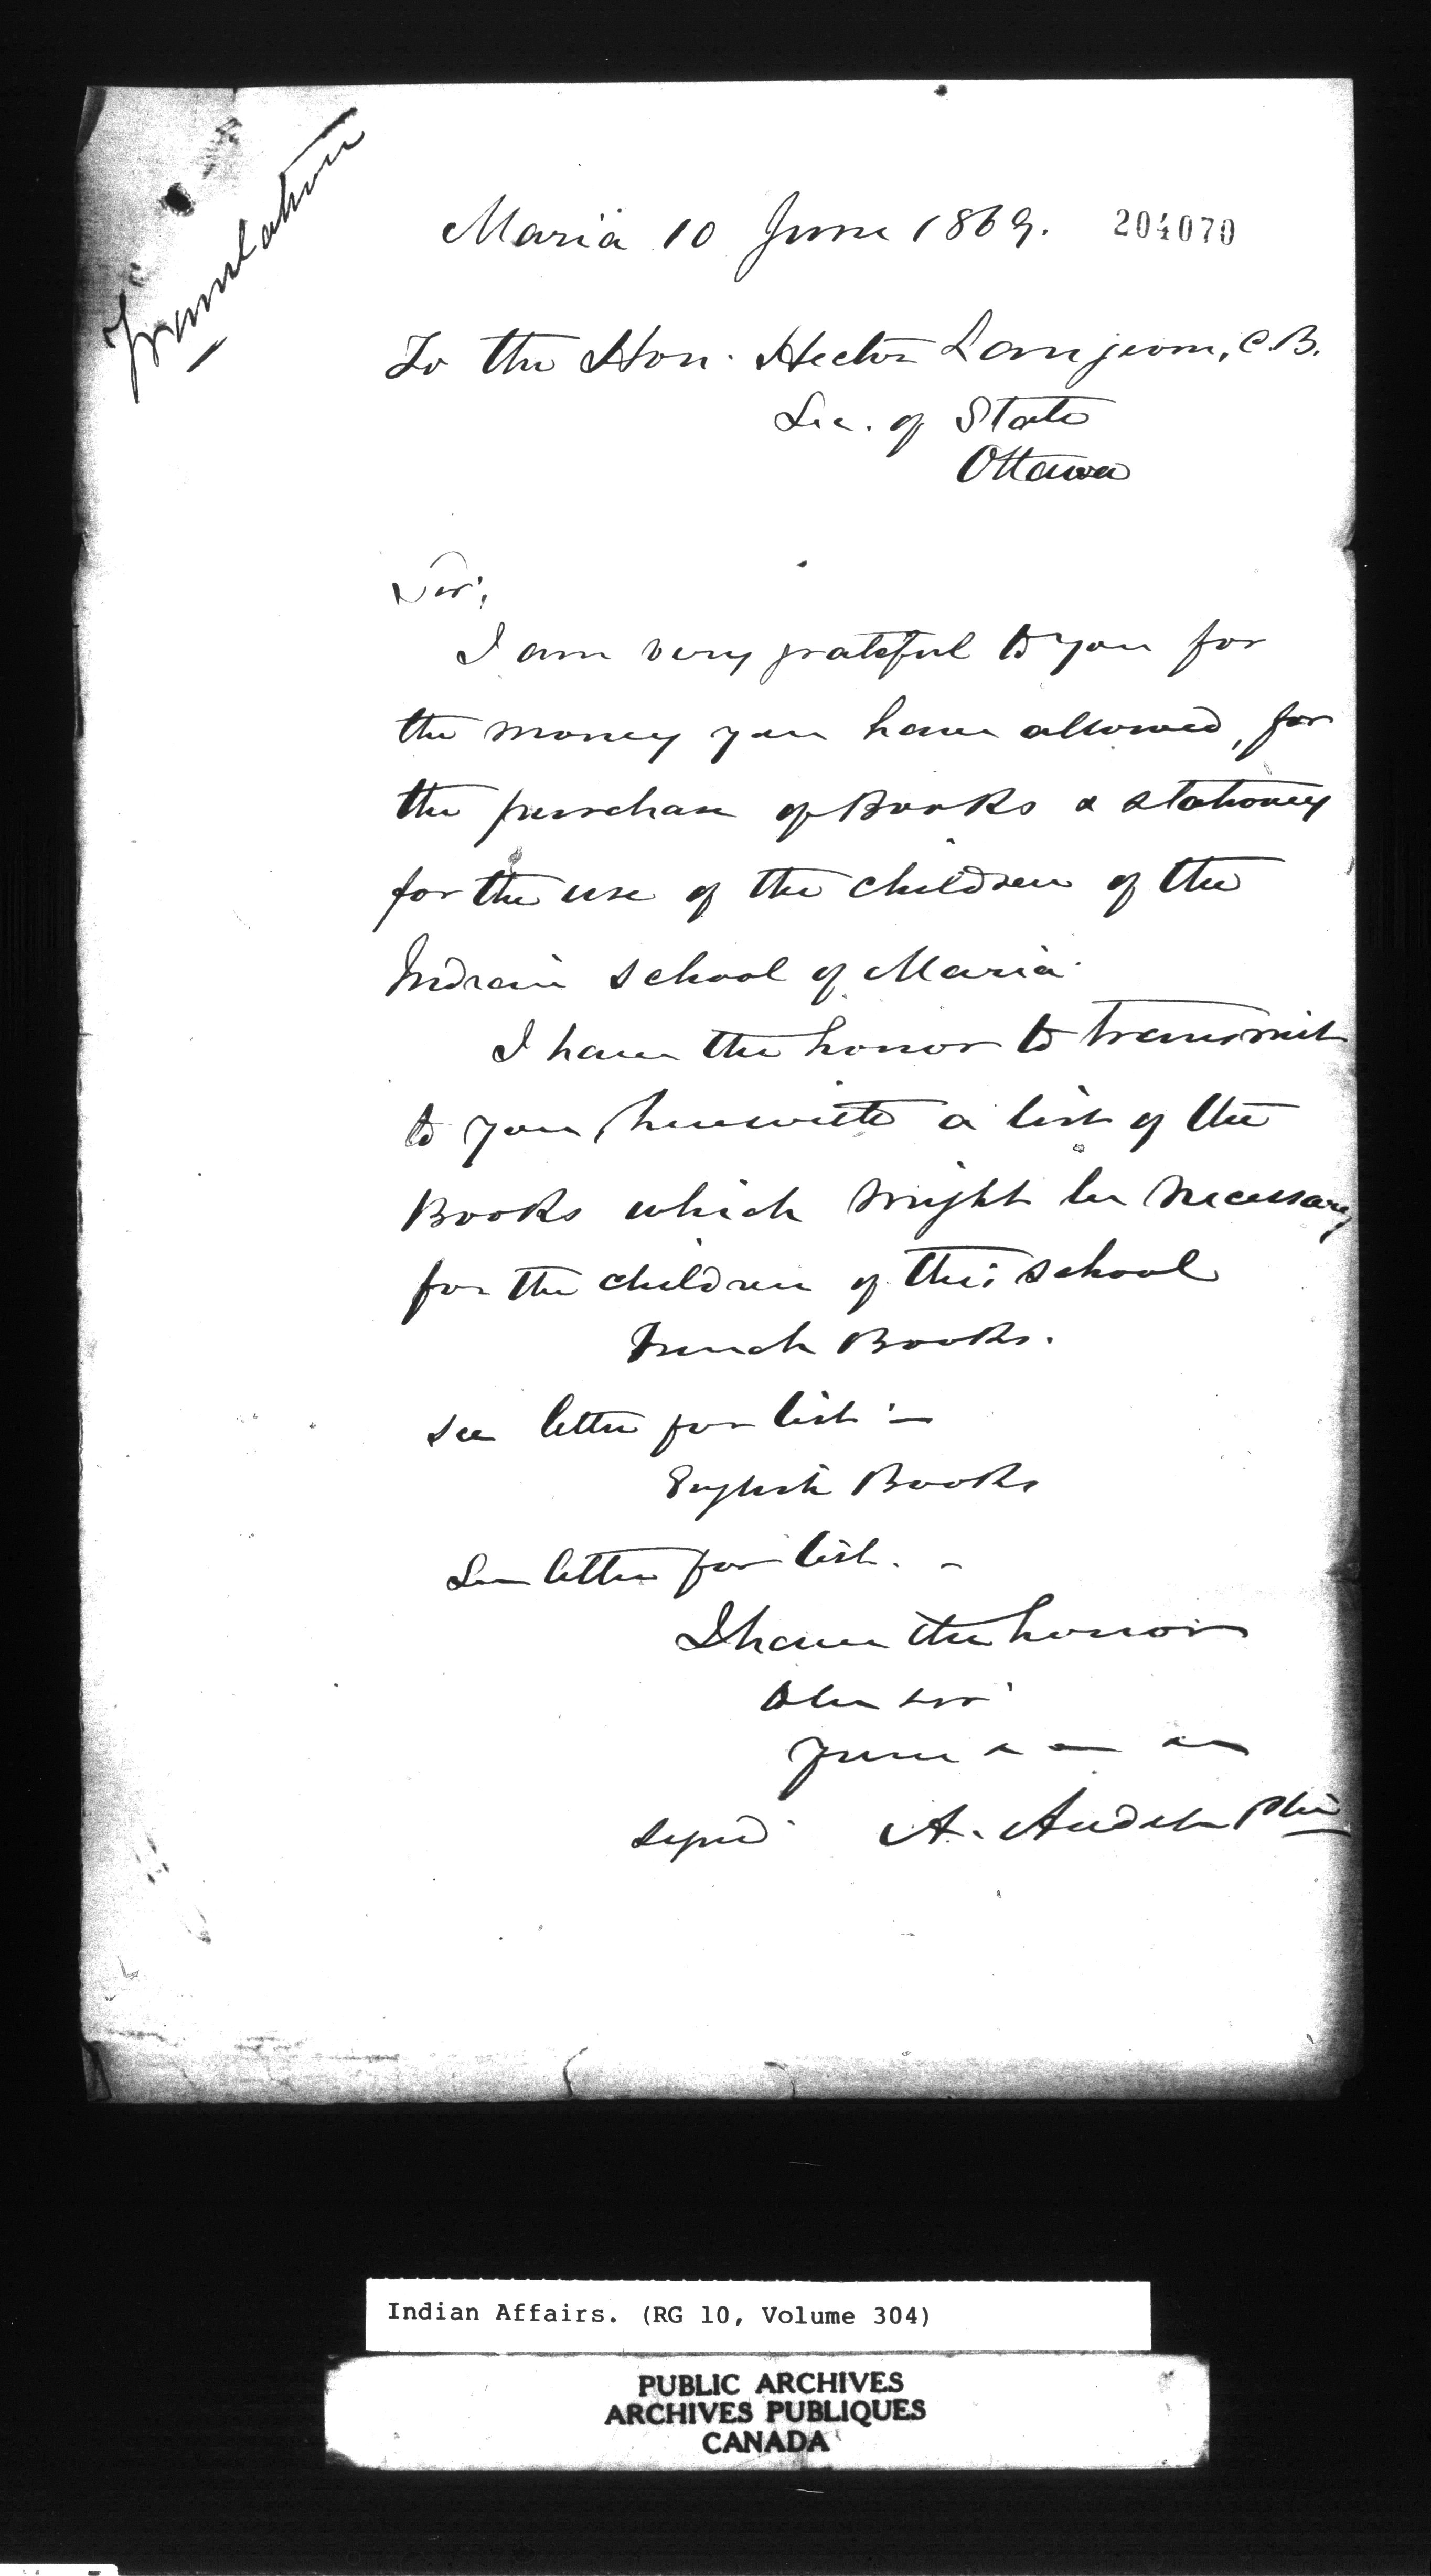 Translation
Maria 10 June 1869. 204070
To the Hon. Hector Langevin, C.B.
Sec. of State
Ottawa
Sir,
I am very grateful to you for
the money you have allowed, for
the purchase of Books & stationery
for the use of the children of the
Indian school of Maria.
I have the honor to transmit
to you, herewith a list of the
Books which might be necessary
for the children of this school
French Books.
see letter for list :—
English Books
See letter for list. -
I have the honor
to be Sir
Yours
signed A. Audet Ptre
Indian Affairs. (RG 10, Volume 304)
PUBLIC ARCHIVES
ARCHIVES PUBLIQUES
CANADA